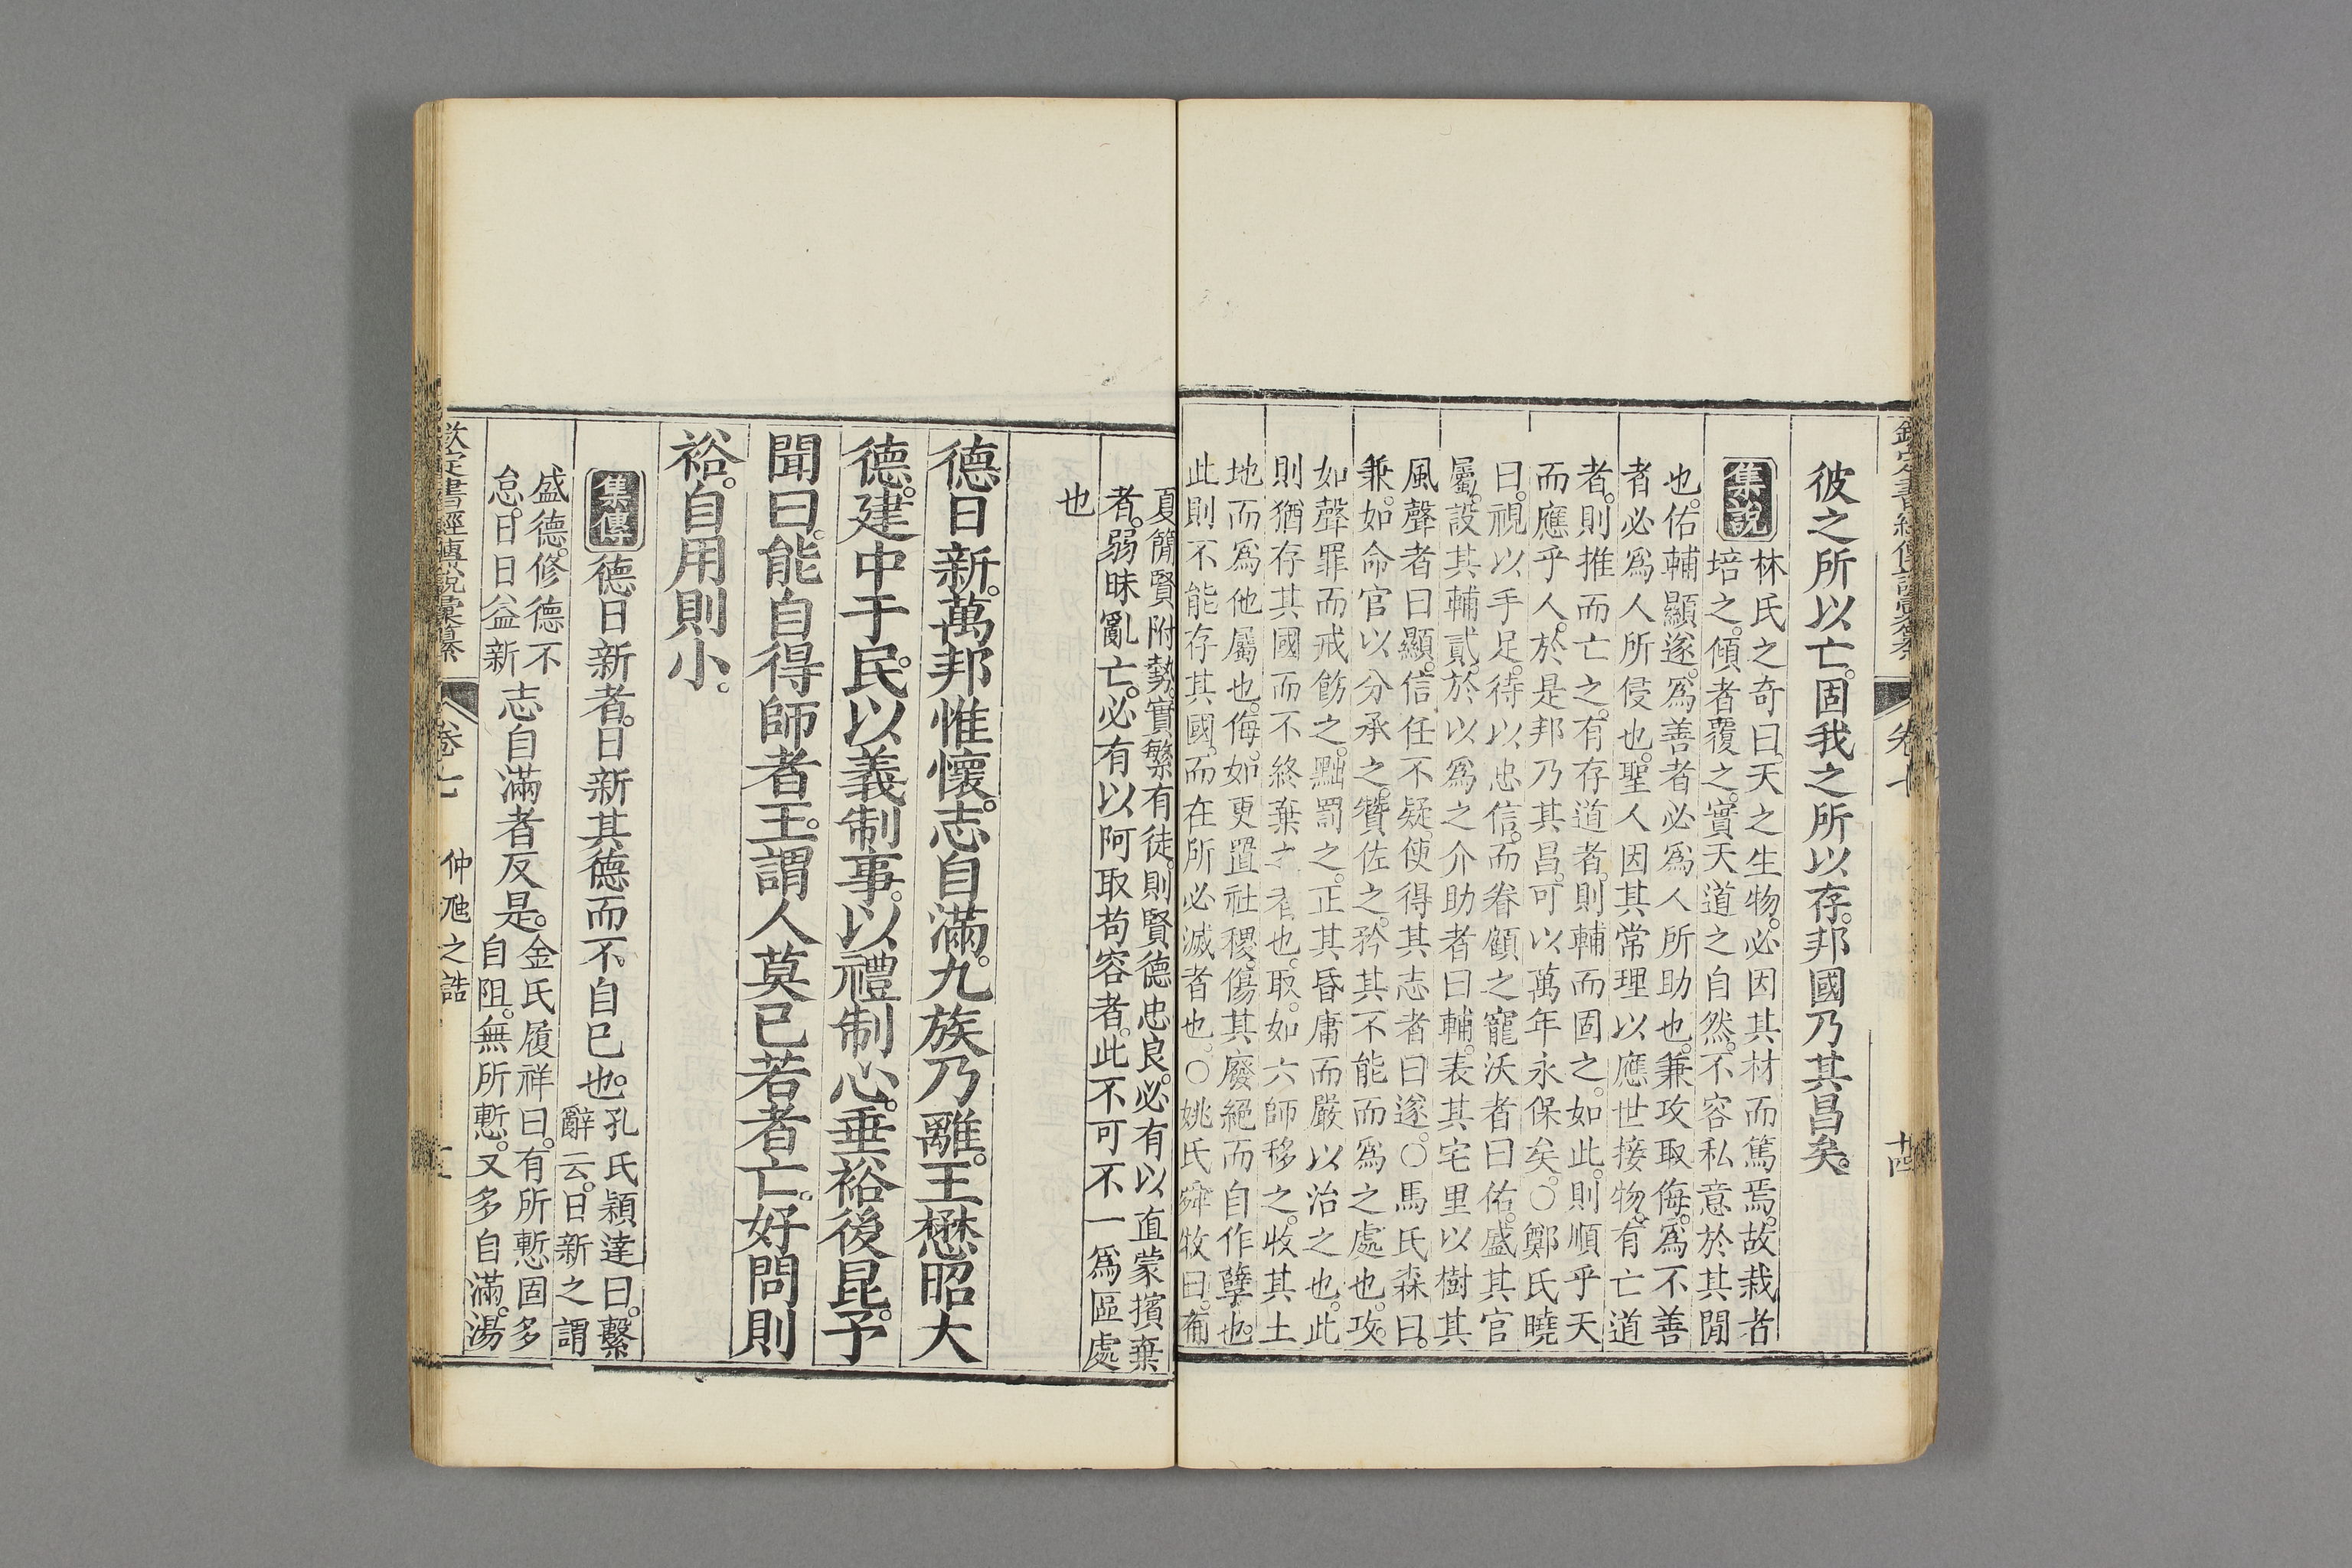 彼之所以亡。固我之所以存。邦國乃其昌矣。
集說
林氏之奇曰。天之生物。必因其材而篤焉。故栽者
培之。傾者覆之。實天道之自然。不容私意於其閒
也。佑輔顯遂。爲善者必爲人所助也。兼攻取侮。爲不善
者必爲人所侵也。聖人因其常理以應世接物。有亡道
者。則推而亡之。有存道者。則輔而固之。如此。則順乎天
而應乎人。於是邦乃其昌。可以萬年永保矣。〇鄭氏曉
曰。視以手足。待以忠信。而眷顧之寵沃者曰佑。盛其官
屬。設其輔貳。於以爲之介助者曰輔。表其宅里以樹其
風聲者曰顯。信任不疑。使得其志者曰遂。〇馬氏森曰。
兼。如命官以分承之。贊佐之。矜其不能而爲之處也。攻。
如聲罪而戒飭之。黜罰之。正其昏庸而嚴以治之也。此
則猶存其國而不終棄之者也。取。如六師移之。收其土
地而爲他屬也。侮。如更置社稷。傷其廢絕而自作孽也。
此則不能存其國。而在所必滅者也。〇姚氏舜牧曰。葡
夏簡賢附勢。實繁有徒。則賢德忠良。必有以直蒙擯棄
者。弱昧亂亡。必有以阿取苟容者。此不可不一爲區處
也
德日新。萬邦惟懷。志自滿。九族乃離。王懋昭大
德。建中于民。以義制事。以禮制心。垂裕後昆。予
聞曰。能自得師者王。謂人莫已若者亡。好問則
裕。自用則小。
集傳
德日新者。日新其德而不自已也。
孔氏穎達曰。繫
辭云。日新之謂
盛德。修德不
怠。日日益新
志自滿者反是。
金氏履祥曰。有所慙固多
自阻。無所慙。又多自滿。湯
欽定書經傳說彙纂
卷七
仲虺之誥